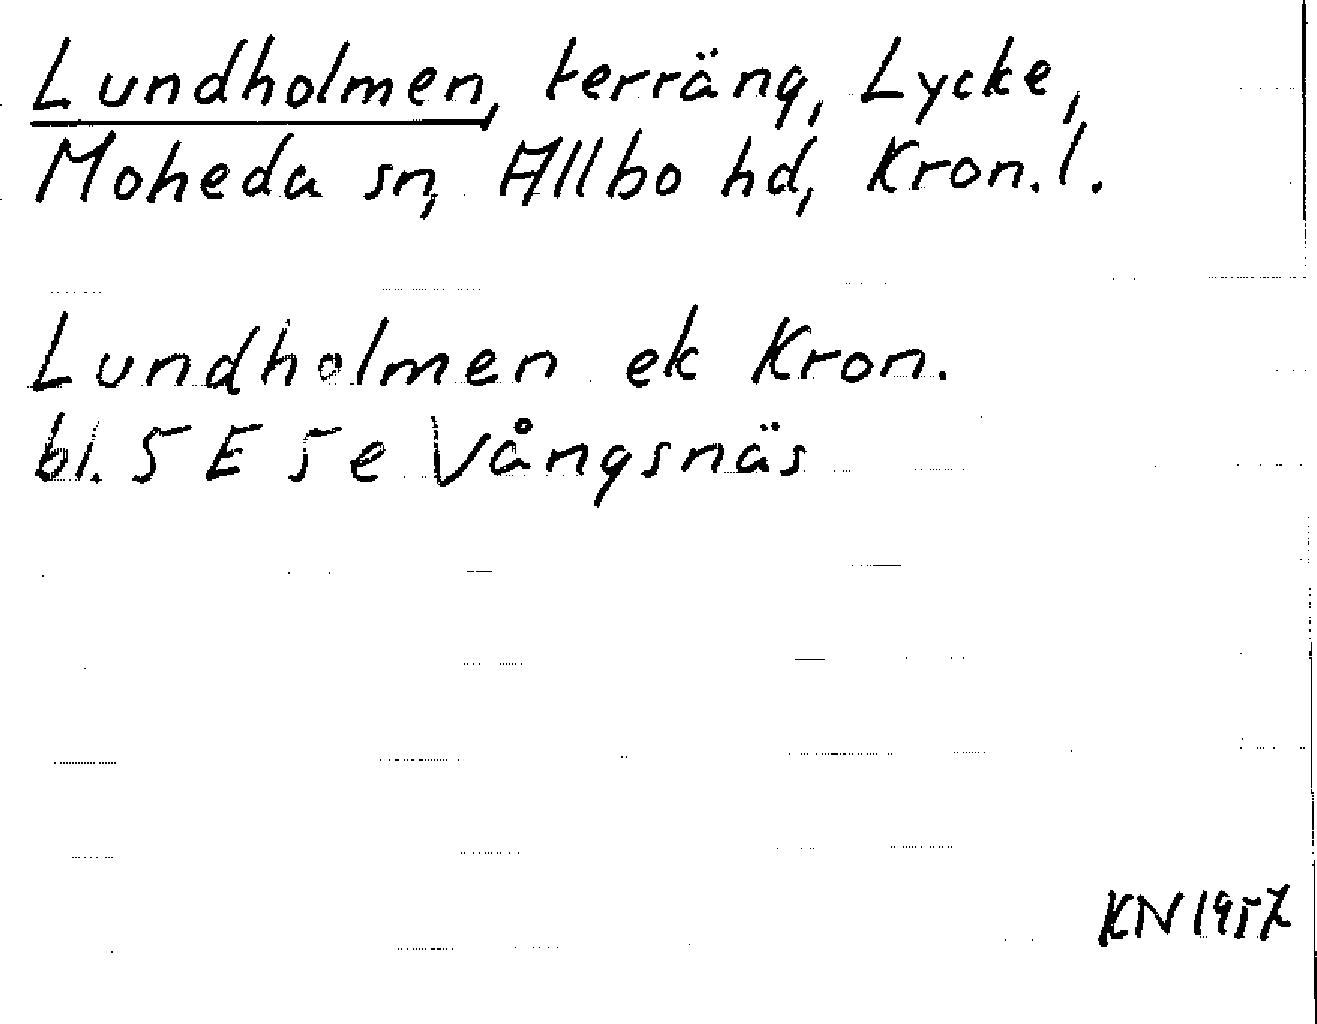 Lundholmen, terräng, Lycke,
Moheda sn, Allbo hd, Kron.l.
Lundholmen ek Kron.
bl. 5 E 5 e Vångsnäs
KN 1957